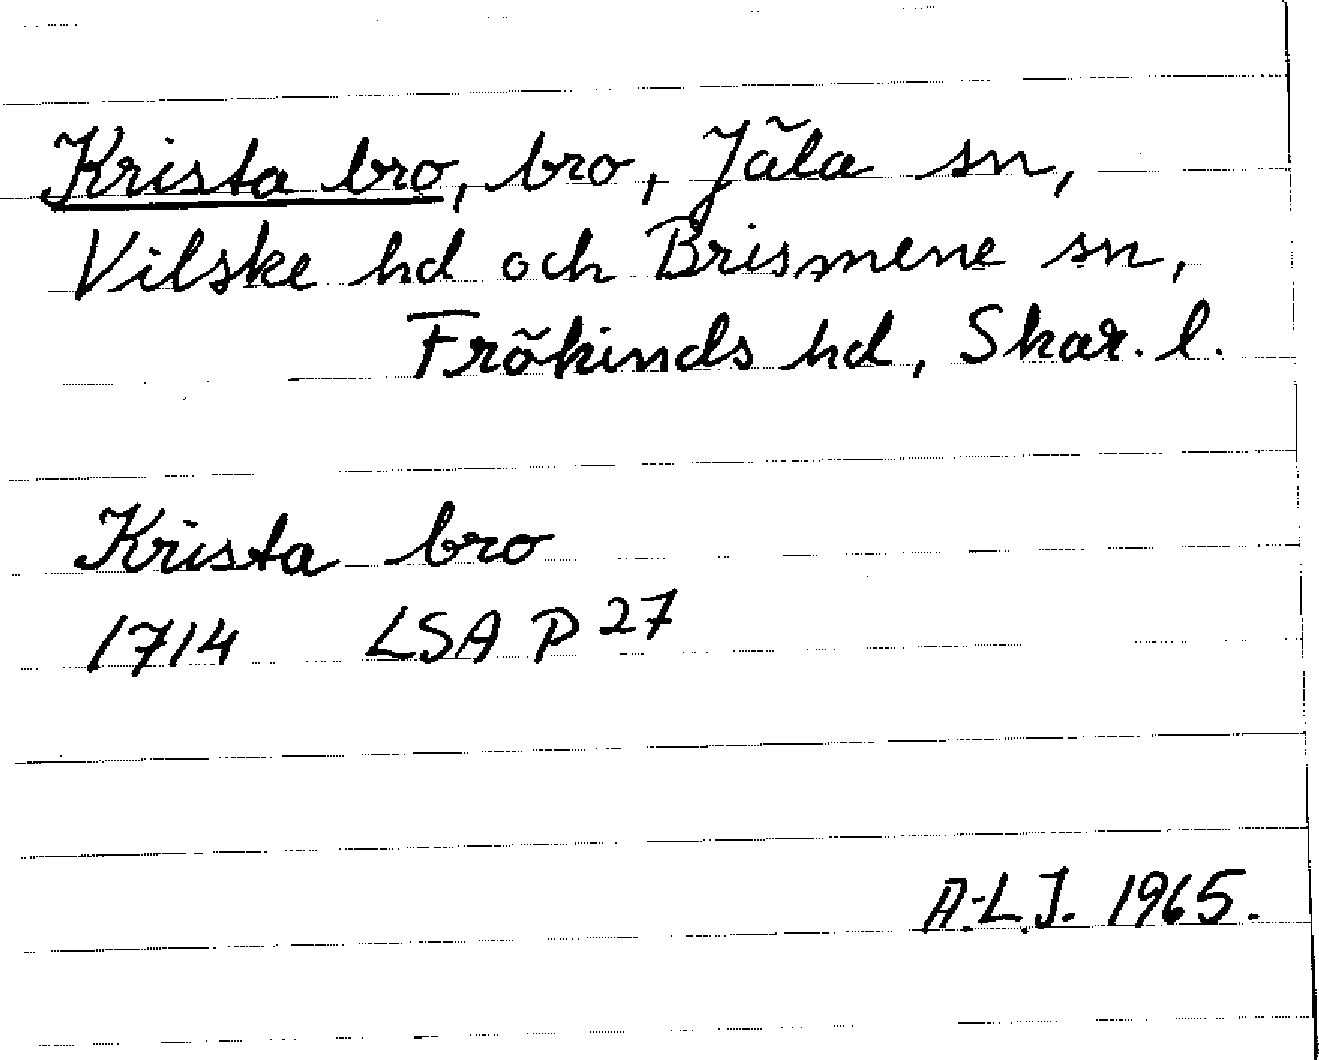 Krista bro, bro, Jäla sn,
Vilske hd och Brismene sn,
Frökinds hd, Skar. l.
Krista bro
1714 LSA P 27
A.-L.J. 1965.